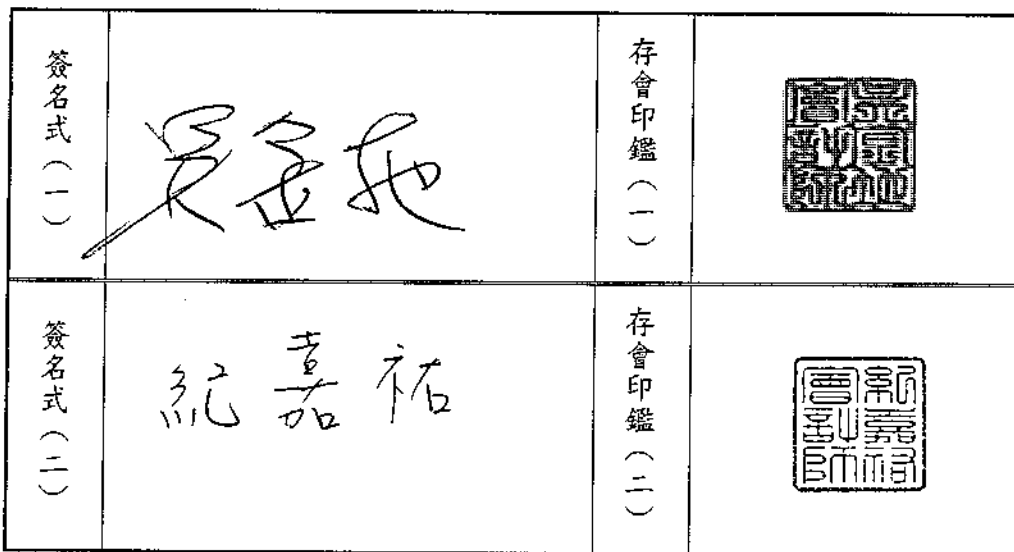 簽名式(一)
吳金地
存會印鑑(一)
吳金地會計師
簽名式(二)
紀嘉祐
存會印鑑(二)
紀嘉祐會計師